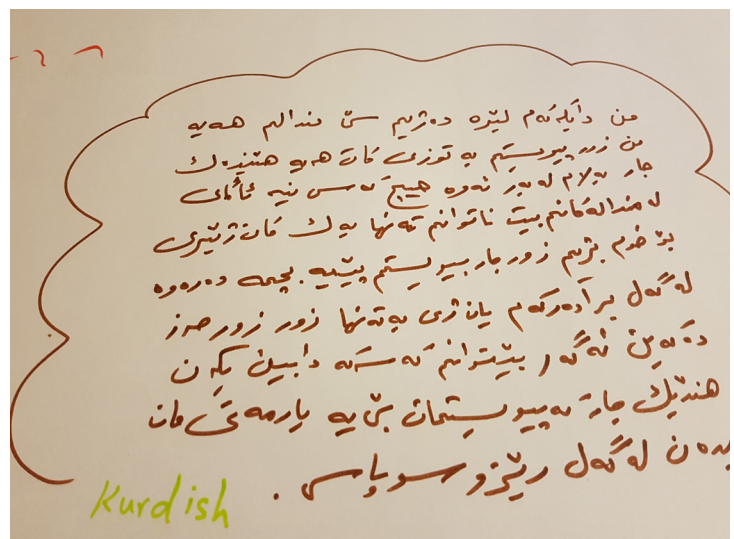 من دایکەکەم لێرە دەژیم سێ منداڵم هەیە
من زور پیویستم بە توزێ کات هەیە هێندەك
جار بەلام لەبەر ئەوە هیچ کەس نیە ئاگای
لە منداڵەکانم بیت ناتوانم تەنها یەك کات ژنێری
بۆ خدم بژیم زور جار پیویستم پێیە بچمە دەرەوە
لەگەل برادەرکەم یان ژی بە تەنها زور زور حەز
دەکەین ئەگەر بیتوانم کەسەکە دابین بکەن
هندێك جار کە پیویستمان بێ بە یارمەتی مان
بدەن لەگەل رێزو سوپاس.
Kurdish